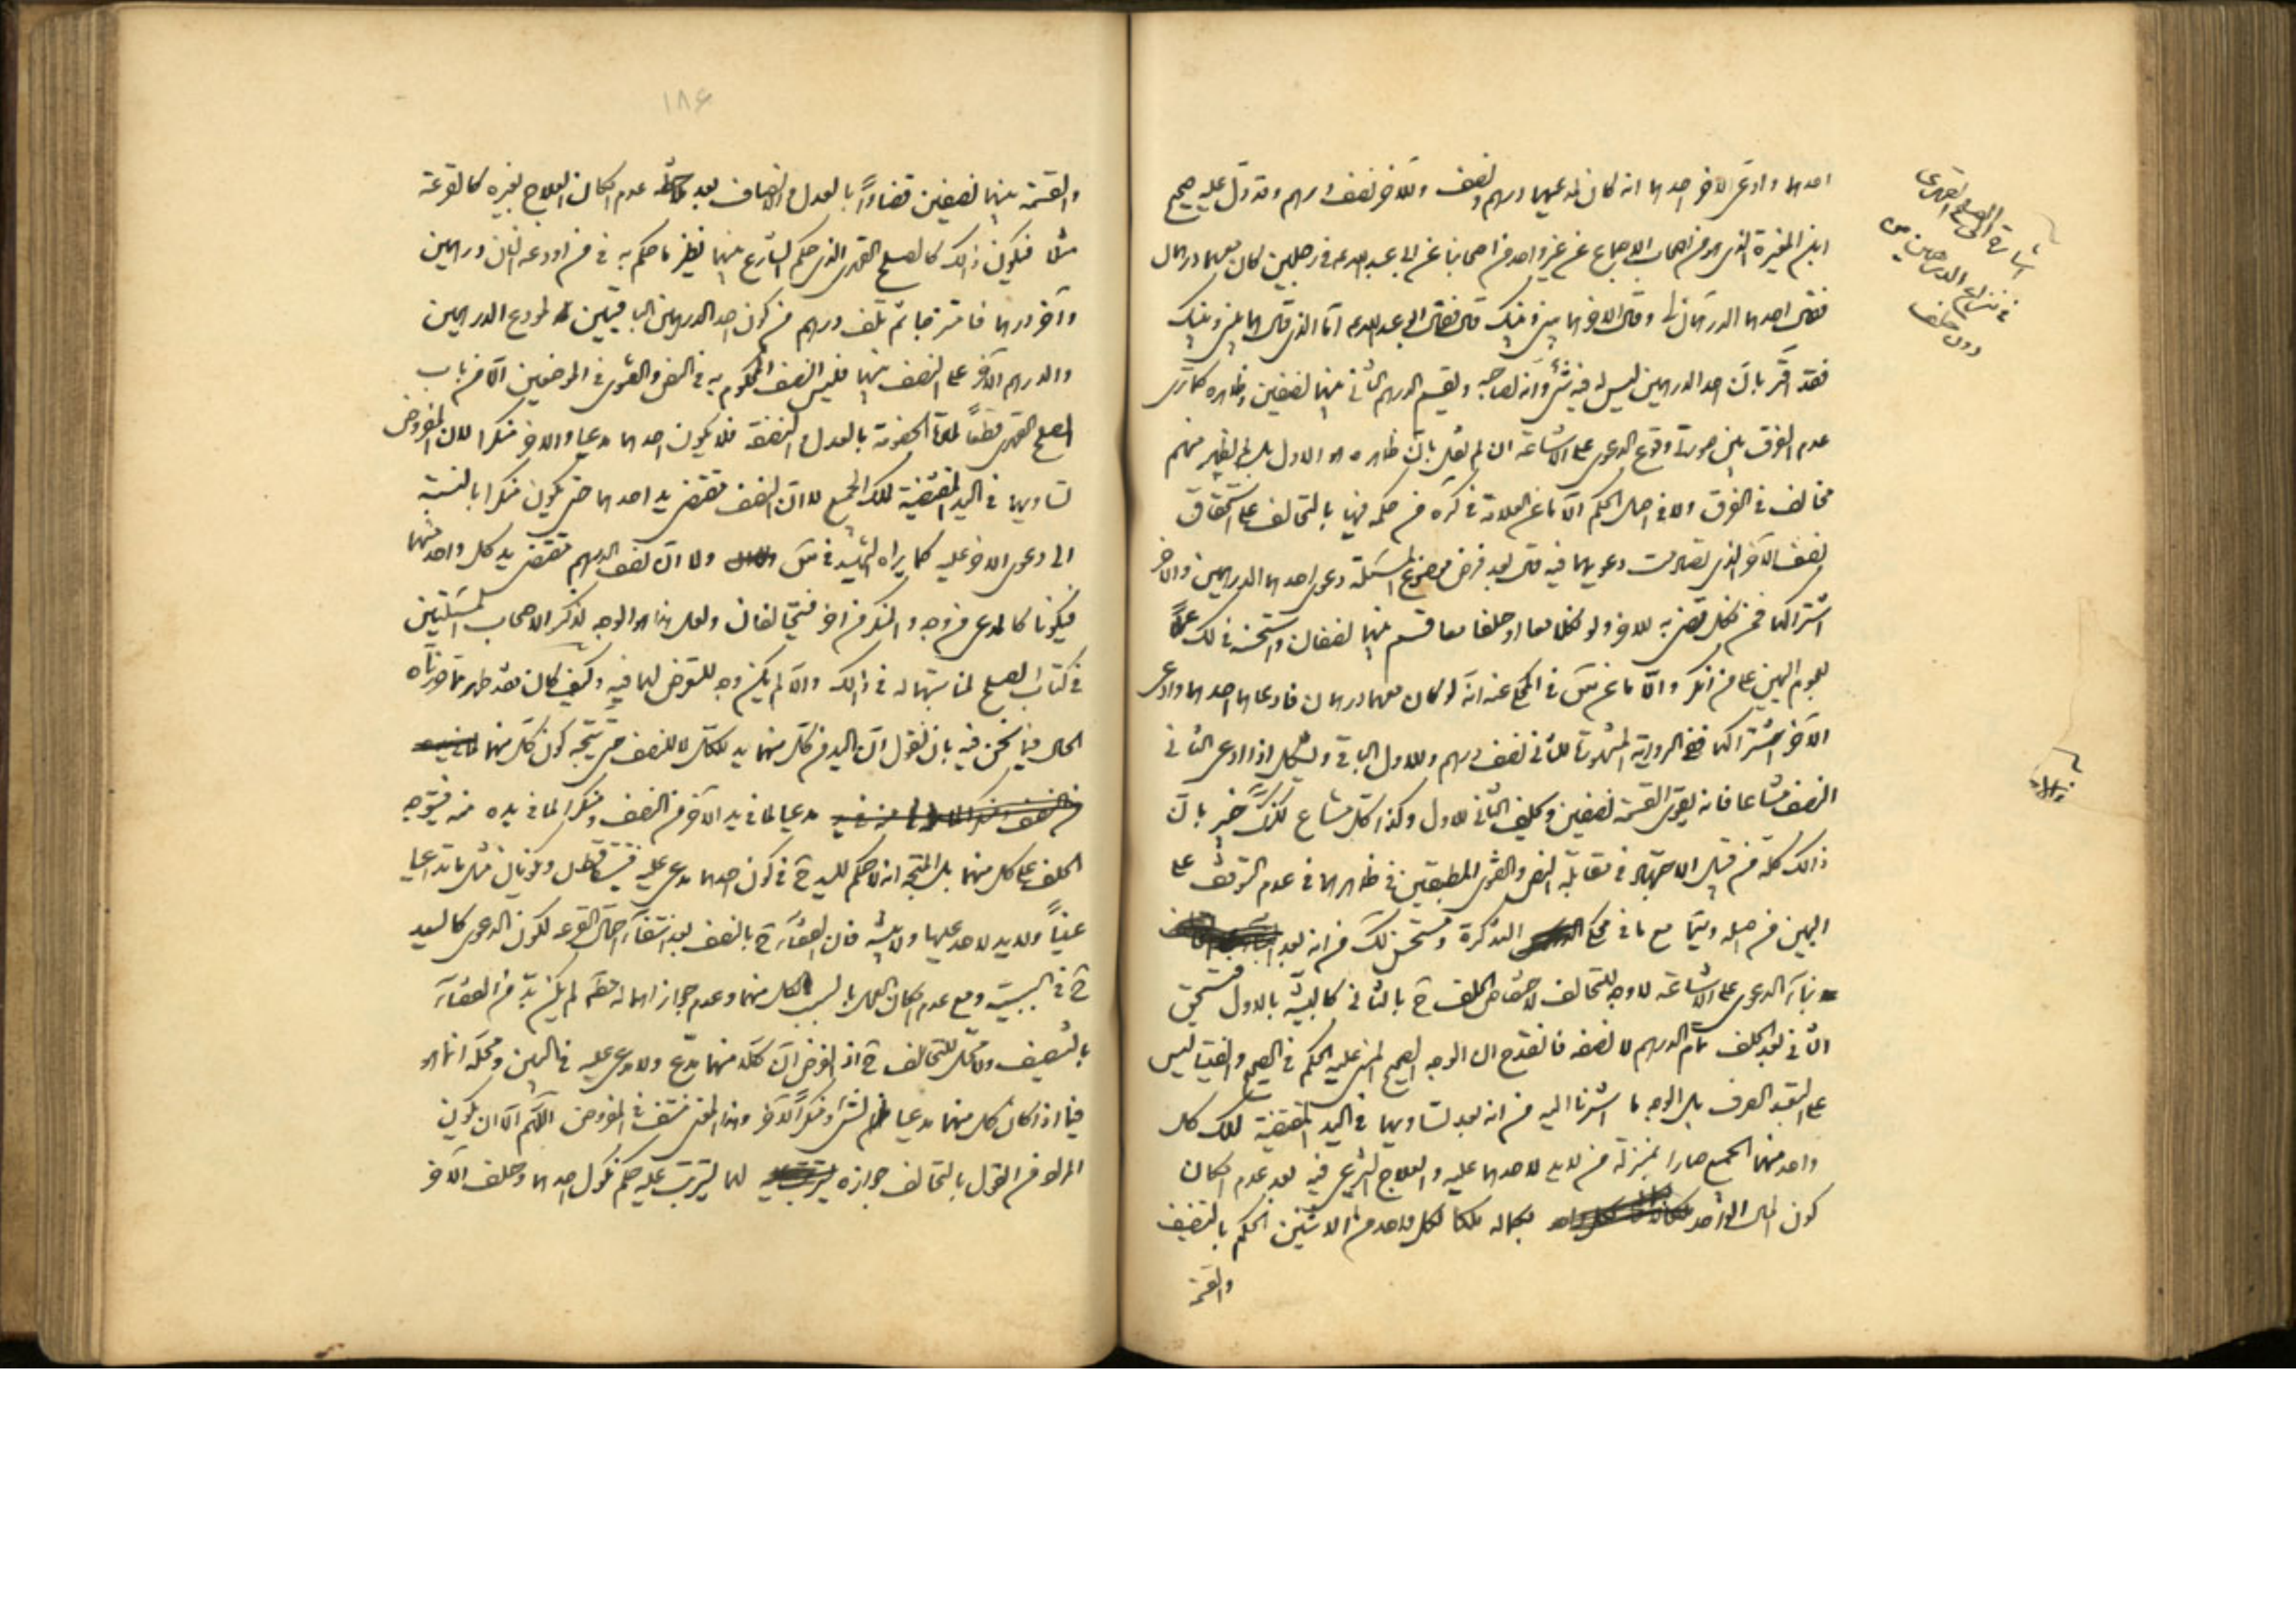 احدهما وادعى الاخر احدهما انه كان لمدعيهما درهم ونصف وللاخر نصف درهم وقد دل عليه صحيح
ابن المغيرة الذى هو من اصحاب الاجماع عن غير واحد من اصحابنا عن ابى عبد الله فى رجلين كان معهما درهمان
فقال احدهما الدرهمان لى وقال الاخر هما بينى وبينك قال فقال ابو عبد الله اما الذى قال هما بينى وبينك
فقد اقر بان احد الدرهمين ليس له فيه شئ وانه لصاحبه ويقسم الدرهم الثانى بينهما نصفين وظاهره كما ترى
عدم الفرق بين صورة وقوع الدعوى على الاشاعة ان لم نقل بان ظاهره هو الاول بل لم يظهر منهم
مخالف فى الفرق ولا فى اصل الحكم الا ما عن العلامة فى كره من حكمه فيها بالتحالف على استحقاق
نصف الاخر الذى تصادمت دعويهما فيه قال بعد فرض موضوع المسئلة دعوى احدهما الدرهمين والاخر
اشتراكهما فمن نكل قضى به للاخر ولو نكلا معا او حلفا معا قسم بينهما نصفان واستحسنه فى لك
لعموم اليمين على من انكر والا ما عن س فى المحكى عنه انه لو كان معهما درهمان فادعاهما احدهما وادعى
الاخر اشتراكهما ففى الرواية المشهورة للثانى نصف درهم وللاول الباقى ويشكل اذا ادعى الثانى
النصف مشاعا فانه يقوى القسمة نصفين ويحلف الثانى للاول وكذا كل مشاع لكنك خبير بان
ذالك كله من قبيل الاجتهاد فى مقابلة النص والفتوى المطبقين فى ظاهرهما فى عدم التوقف على
اليمين من اصله وسيما مع ما فى محكى التذكرة ومستحسن لك من انه بعد
بناء الدعوى على الاشاعة لا وجه للتحالف لاختصاص الحلف ح بالثانى كالبينة بالاول فيستحق
الثانى بعد الحلف تمام الدرهم لا نصفه فانقدح ان الوجه الصحيح المبنى عليه الحكم فى الصحيح والفتيا ليس
على التعبد الصرف بل الوجه ما اشرنا اليه من انه بعد تساويهما فى اليد المقتضية لملك كل
واحد منهما الجميع صارا بمنزلة من لا يد لاحدهما عليه والعلاج الشرعى فيه بعد عدم امكان
كون المال الواحد بكماله ملكا لكل واحد من الاثنين الحكم بالتنصيف
والقسمة
اشارة الى الصلح القهرى
فى نزاع الدرهمين من
دون حلف
١٨۶
والقسمة بينهما نصفين قضاءً بالعدل والانصاف بعد عدم امكان العلاج بغيره كالقرعة
مثلا فيكون ذالك كالصلح القهرى الذى حكم الشارع بينهما نظير ما حكم به فى من اودعه انسان درهمين
وآخر درهما فامتزجا ثم تلف درهم من كون احد الدرهمين الباقيين لمودع الدرهمين
والدرهم الآخر على النصف بينهما فليس النصف المحكوم به فى النص والفتوى فى الموضعين الا من باب
الصلح القهرى قطعاً لمادة الخصومة بالعدل والنصفة فلا يكون احدهما مدعيا والاخر منكرا لان المفروض
تساويهما فى اليد المقتضية لملك الجميع لا ان النصف مقتضى يد احدهما حتى يكون منكرا بالنسبة
الى دعوى الاخر عليه كما يراه الشهيد فى س ولا ان نصف الدرهم مقتضى يد كل واحد منهما
فيكونا كالمدعى من وجه والمنكر من اخر فيتحالفان ولعل هذا هو الوجه لذكر الاصحاب المسئلتين
فى كتاب الصلح لمناسبتهما له فى ذالك والا لم يكن وجه للتعرض لهما فيه وكيف كان فقد ظهر مما حررناه
الحال فيما نحن فيه بان نقول ان اليد من كل منهما يد للكل لا للنصف حتى يتجه كون كل منهما
مدعيا لما فى يد الآخر من النصف ومنكرا لما فى يده منه فيتوجه
الحلف على كل منهما بل المتجه انه لا حكم لليد ح فى كون احدهما مدعى عليه فيتساقطان ويكونان مثل ما تداعيا
عيناً ولا يد لاحد عليها ولا بينة فان القضاء ح بالنصف بعد انتفاء احتمال القرعة لكون الدعوى كاليد
ح فى السببية ومع عدم امكان العمل بالسبب لكل منهما وعدم جواز اهماله لم يكن بد من القضاء
بالتنصيف ولا محل للتحالف ح اذ الفرض ان كلا منهما مدع ولا مدعى عليه فى البين ومحله انما هو
فيما اذا كان كل منهما مدعيا لشئ ومنكراً لآخر وهذا المعنى منتف فى المفروض اللهم الا ان يكون
المراد من القول بالتحالف جوازه لهما ليترتب عليه حكم نكول احدهما وحلف الآخر